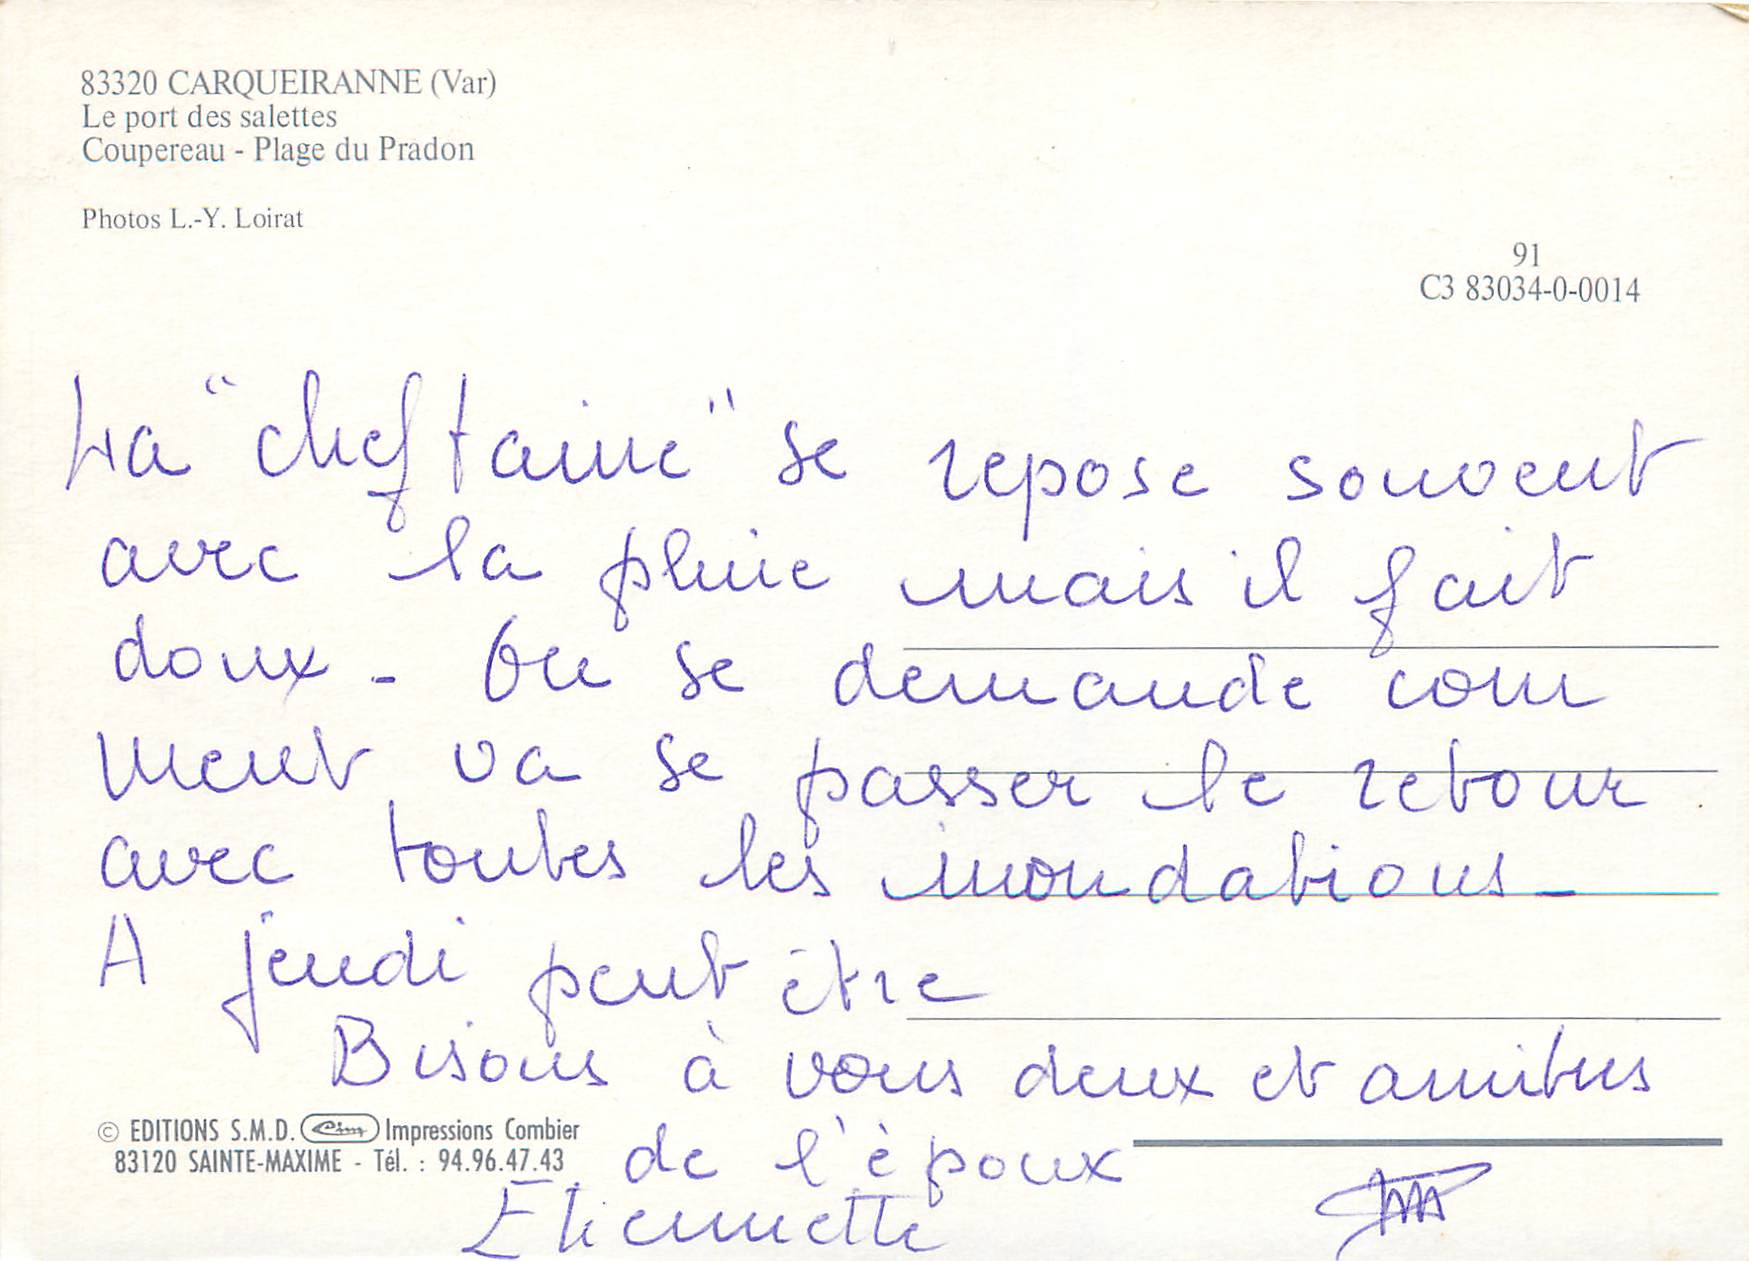 83320 CARQUEIRANNE (Var)
Le port des salettes
Coupereau - Plage du Pradon
Photos L.-Y. Loirat
91
C3 83034-0-0014
La "cheftaine" se repose souvent
avec la pluie mais il fait
doux - On se demande com
ment va se passer le retour
avec toutes les inondations -
A jeudi peut être
Bisous à vous deux et amitiés
de l'époux
Etiennette
© EDITIONS S.M.D. Cim Impressions Combier
83120 SAINTE-MAXIME - Tél. : 94.96.47.43